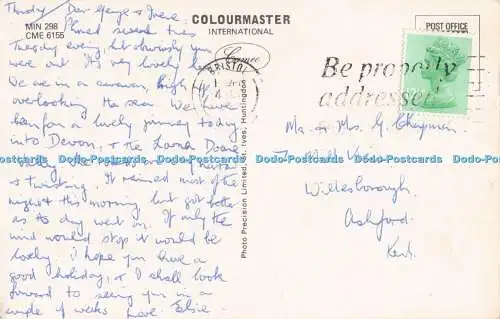 Thursday Dear George & Irene
Phoned several times
Tuesday evening, but obviously you
were out. It's very lovely here
We are in a caravan, high up
overlooking the sea. We have
been for a lovely journey today
into Devon, & the Lorna Doone
& twisting. It rained most of the
night & this morning but got better
as the day went on. If only the
wind would stop it would be
lovely. I hope you have a
good holiday, & I shall look
forward to seeing you in a
couple of weeks Love Elsie
MIN 298
CME 6155
COLOURMASTER
INTERNATIONAL
Cameo
Photo Precision Limited, St. Ives, Huntingdon
POST OFFICE
BRISTOL
Be properly
addressed
Mr. & Mrs. G. Chapman.
Willesborough.
Ashford.
Kent.
Dodo-Postcards Dodo-Postcards Dodo-Postcards Dodo-Postcards Dodo-Postcards Dodo-Postcards